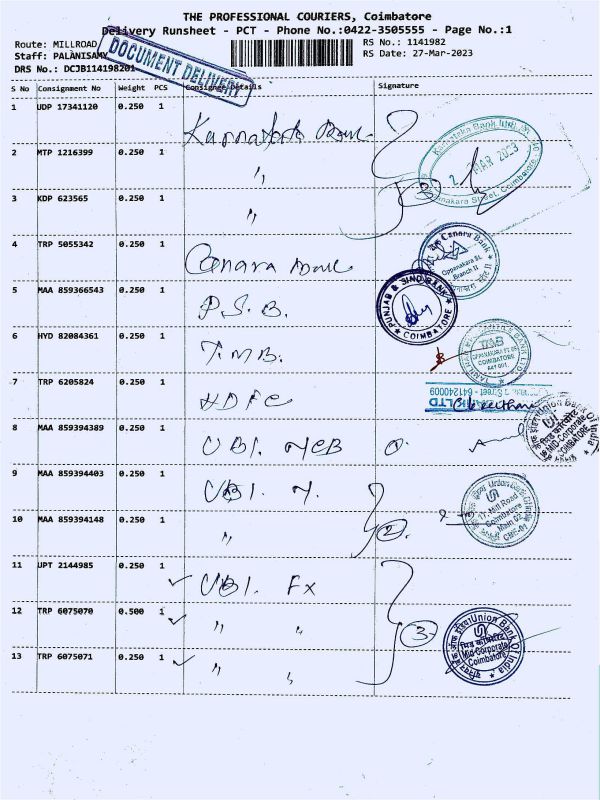 THE PROFESSIONAL COURIERS, Coimbatore
Delivery Runsheet - PCT - Phone No.:0422-3505555 - Page No.:1
Route: MILLROAD
RS No.: 1141982
Staff: PALANISAMY
RS Date: 27-Mar-2023
DRS No.: DCJB114198201
DOCUMENT DELIVERY
S No Consignment No Weight PCS Consignee Details Signature
1 UDP 17341120 0.250 1 Karnataka Bank
2 MTP 1216399 0.250 1 "
3 KDP 623565 0.250 1 " 3
Karnataka Bank
MAR 2023
Coimbatore
4 TRP 5055342 0.250 1 Canara Bank
Canara Bank
Oppanakara St.
Branch II
5 MAA 859366543 0.250 1 P.S.B.
PUNJAB & SIND BANK
COIMBATORE
6 HYD 82084361 0.250 1 T.M.B.
TMB
OPPANAKARA ST
COIMBATORE
641 001.
7 TRP 6205824 0.250 1 HDFC
8 MAA 859394389 0.250 1 UBI. MCB
Union Bank Of India
Mid Corporate
COIMBATORE
9 MAA 859394403 0.250 1 UBI. M.
10 MAA 859394148 0.250 1 " 2
Union Bank Of India
17, Mill Road
Coimbatore
Main 02
CBE-01
11 UPT 2144985 0.250 1 UBI. FX
12 TRP 6075070 0.500 1 " " 3
13 TRP 6075071 0.250 1 " "
Union Bank Of India
Mid Corporate
Coimbatore